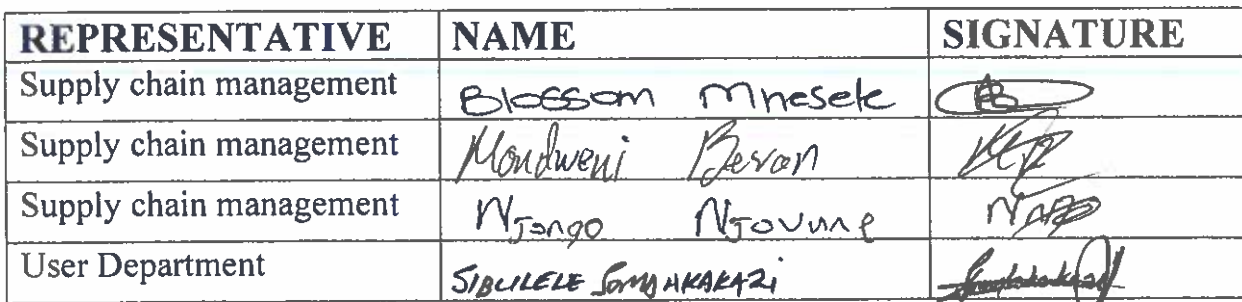 REPRESENTATIVE NAME SIGNATURE
Supply chain management Blossom
Supply chain management Mondweni Bevan
Supply chain management Njongo Njovune
User Department SIBULELE